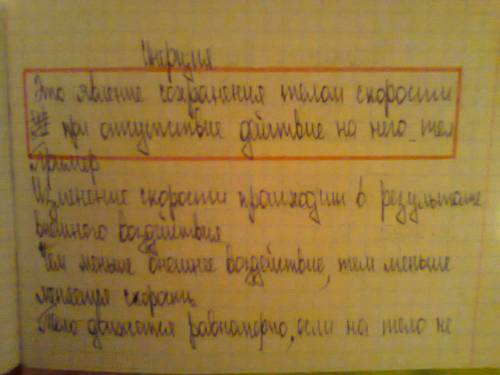 Инерция
Это явление сохранения телом скорости
при отсутствие действие на него тел
Пример
Изменение скорости происходит в результате
внешнего воздействия
Чем меньше внешнее воздействие, тем меньше
меняется скорость
Тело движется равномерно, если на тело не